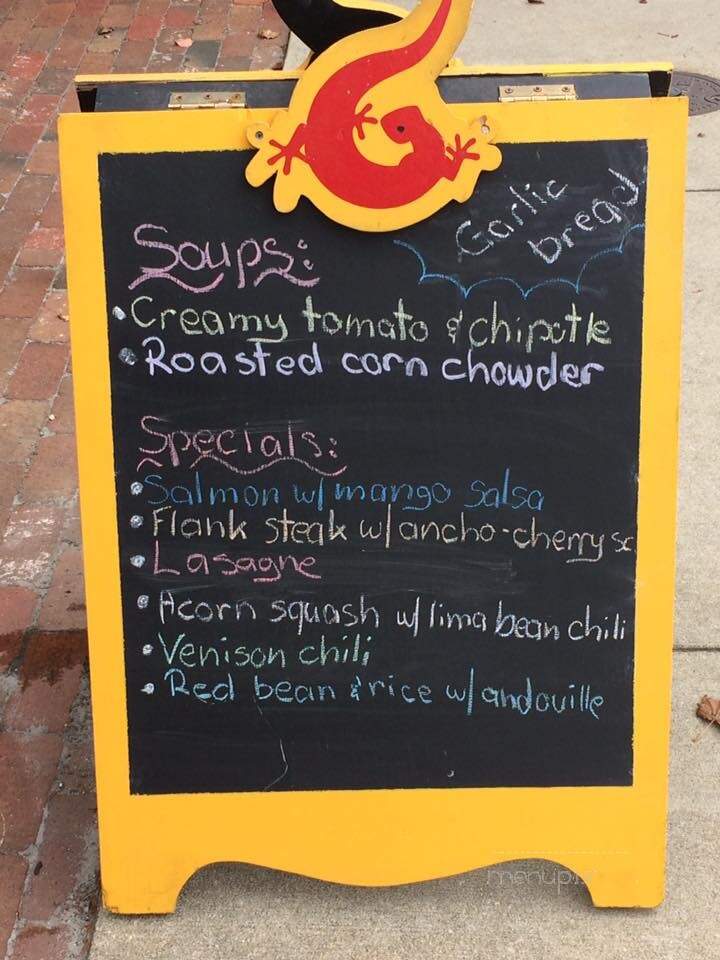 Garlic
bread
Soups:
• Creamy tomato & chipotle
• Roasted corn chowder
Specials:
• Salmon w/ mango salsa
• Flank steak w/ ancho-cherry sc
• Lasagne
• Acorn squash w/ lima bean chili
• Venison chili
• Red bean & rice w/ andouille